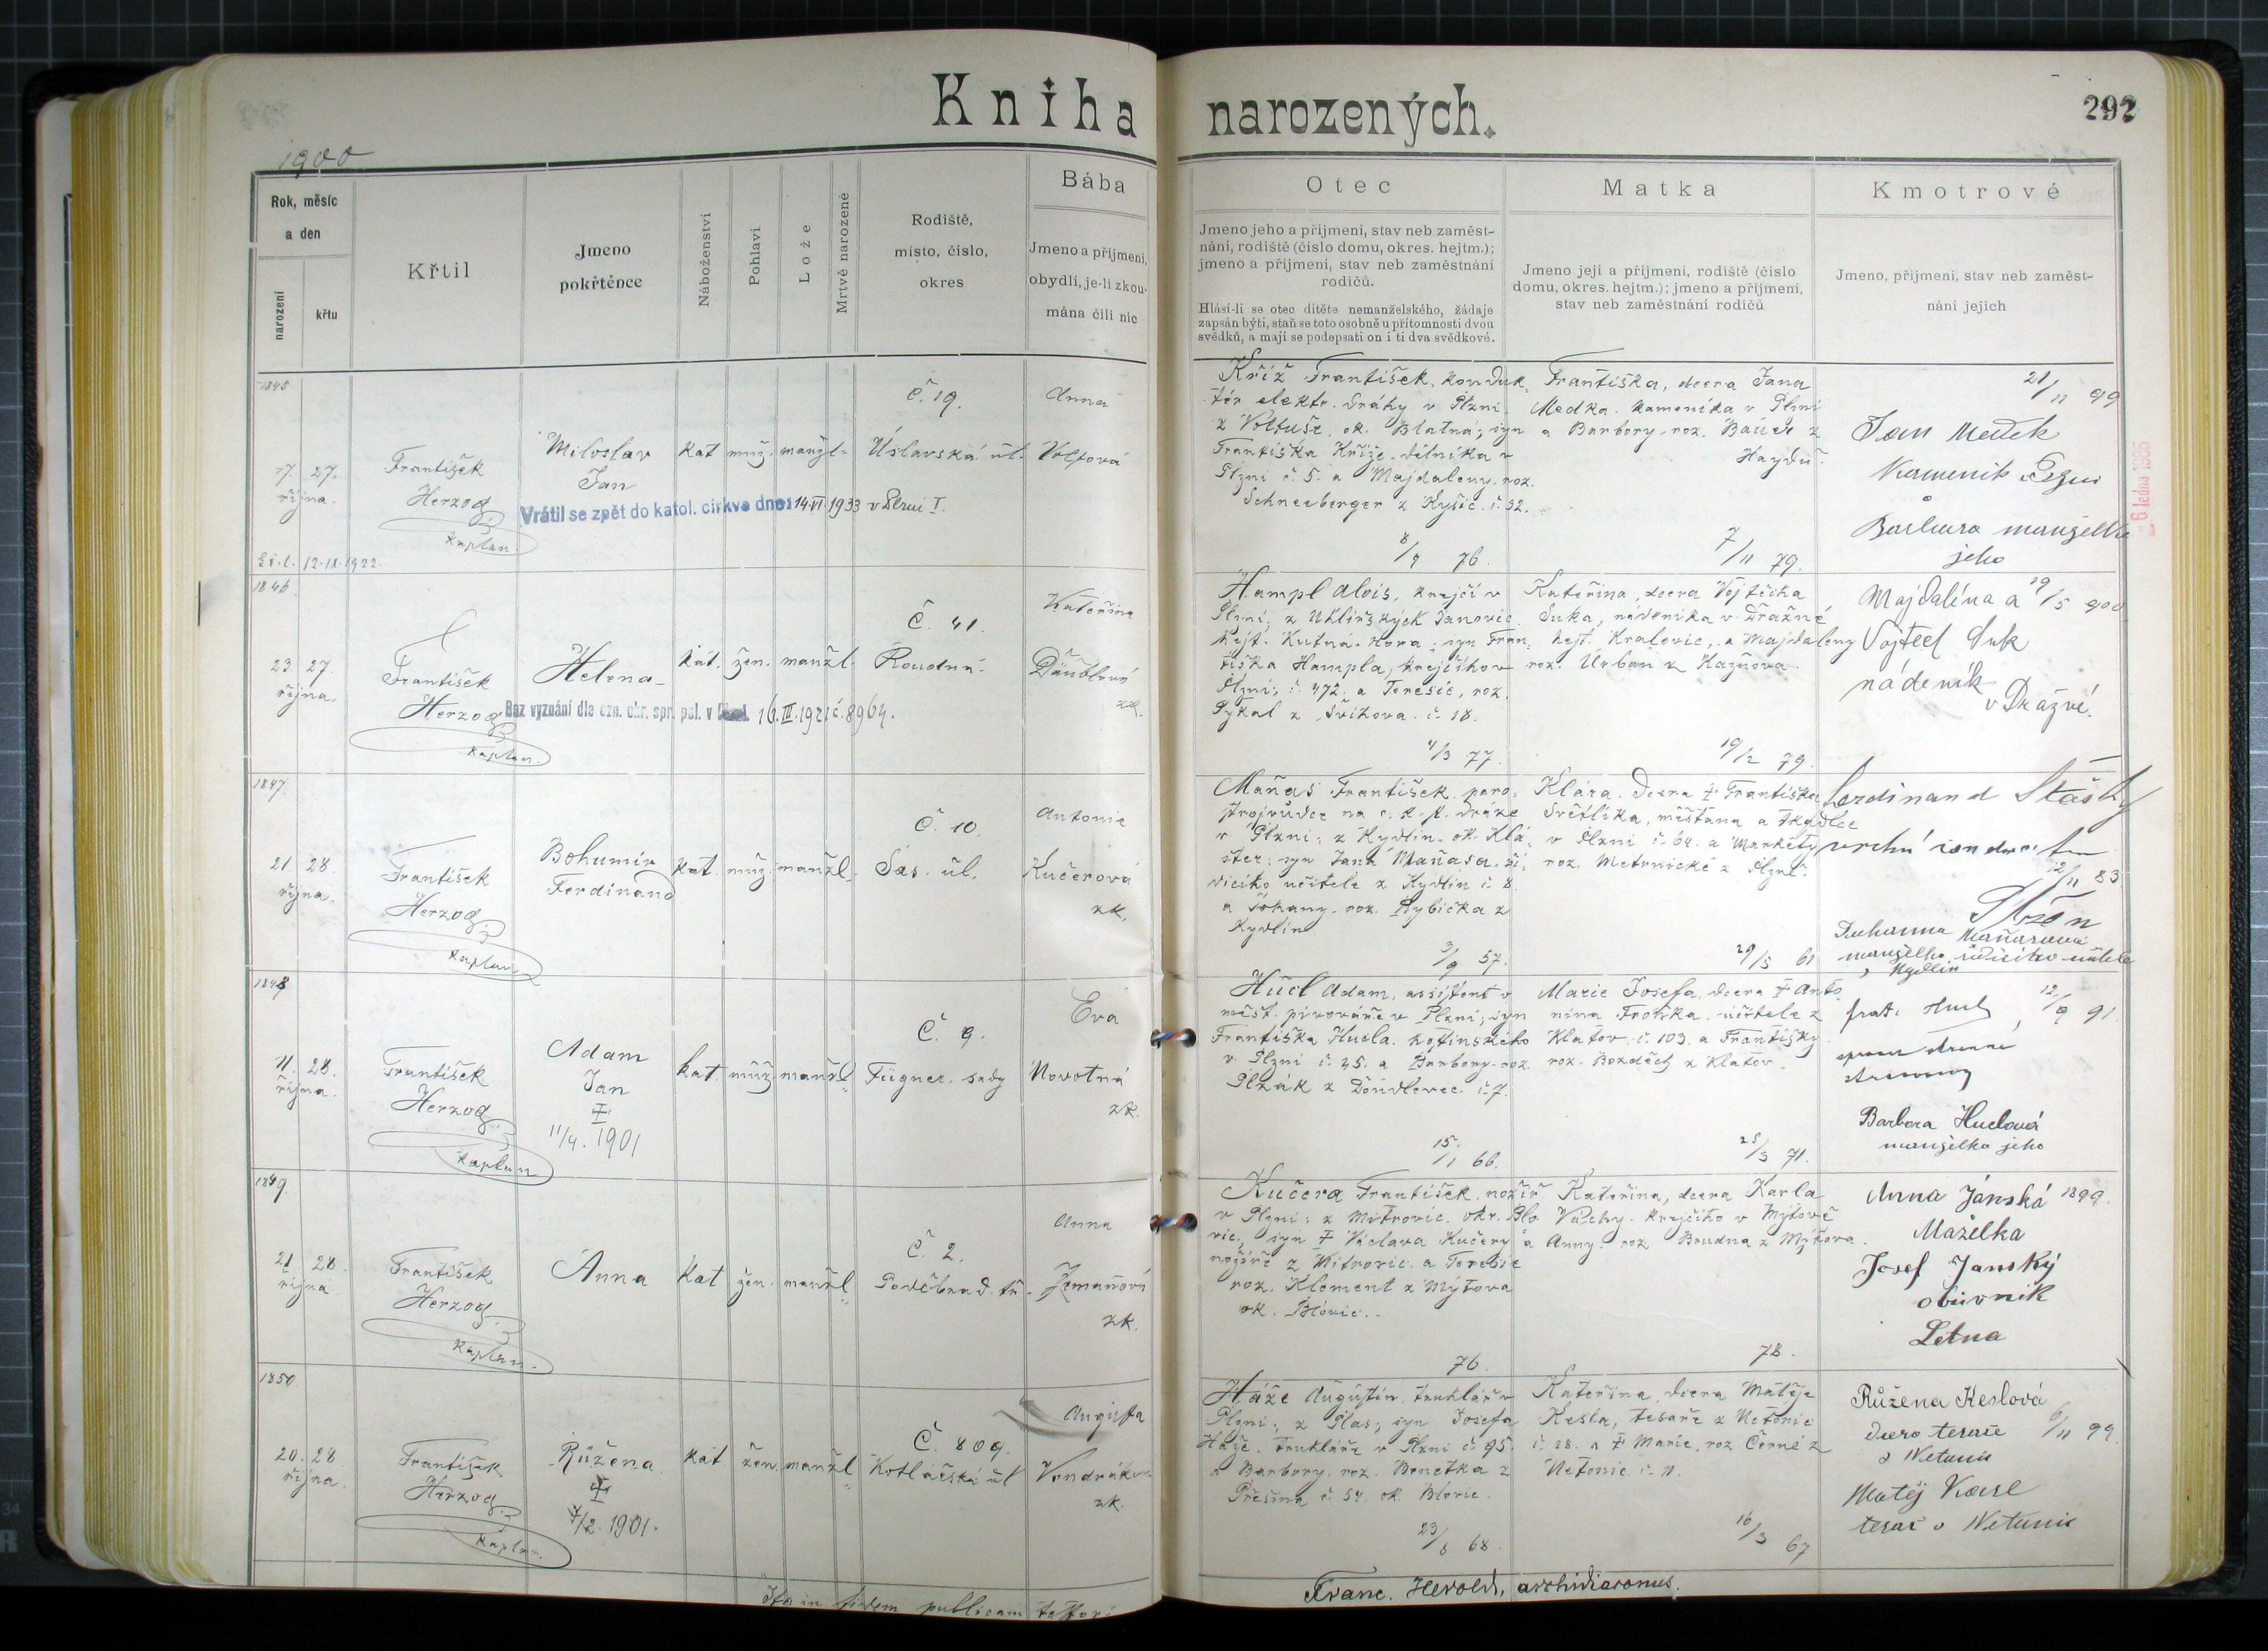 Kniha narozených.
292
1900
Rok, měsíc a den
narození
křtu
Křtil
Jmeno pokřtěnce
Náboženství
Pohlaví
Lože
Mrtvě narozené
Rodiště, místo, číslo, okres
Bába
Jmeno a příjmení, obydlí, je-li zkoumána čili nic
Otec
Jmeno jeho a příjmení, stav neb zaměst-
nání, rodiště (číslo domu, okres. hejtm.);
jmeno a příjmení, stav neb zaměstnání
rodičů.
Hlásí-li se otec dítěte nemanželského, žádaje
zapsán býti, staň se toto osobně u přítomnosti dvou
svědků, a mají se podepsati on i ti dva svědkové.
Matka
Jmeno její a příjmení, rodiště (číslo
domu, okres. hejtm.); jmeno a příjmení,
stav neb zaměstnání rodičů
Kmotrové
Jmeno, příjmení, stav neb zaměst-
nání jejich
1845
17. 27.
října.
František
Herzog
kaplan.
Miloslav
Jan
kat muž. manžl.
Č. 19.
Úslavská ul.
Anna
Voltová
Vrátil se zpět do katol. církve dne: 14.VI.1933 v Plzni I.
12.IX.1922.
Kříž František, konduk-
tér elektr. dráhy v Plzni,
z Voltuše, ok. Blatná; syn
Františka Kříže, dělníka v
Plzni č. 5. a Majdaleny, roz.
Schneeberger z Kyšic. č. 32.
8/4 76.
Františka, dcera Jana
Medka, kameníka v Plzni
a Barbory, roz. z
7/11 79.
21/11 99
Jan
Kameník Plzni
Barbora manželka
jeho
1846.
23. 27.
října.
František
Herzog
kaplan.
Helena
kat. žen. manžl.
Č. 41.
Roudná.
Kateřina
zk.
Bez vyznání dle ozn. okr. spr. pol. v 16.III.1921 č. 8964.
Hampl Alois, krejčí v
Plzni; z Uhlířských Janovic,
hejt. Kutná Hora; syn Fran-
tiška Hampla, krejčího v
Plzni, č. 472. a Teresie, roz.
Pykal z Švihova. č. 18.
4/3 77.
Kateřina, dcera Vojtěcha
Suka, nádeníka v Dražné
hejt. Kralovic, a Majdaleny
roz. Urban z Kaznova.
19/2 79.
Majdaléna a 19/5 900
Vojtěch Suk
nádeník
v Drážné.
1847.
21. 28.
října.
František
Herzog
kaplan
Bohumír
Ferdinand
kat. muž. manžl.
Č. 10.
Sas. ul.
Antonie
Kučerová
zk.
Maňas František, paro-
strojvůdce na c. k. st. dráze
v Plzni; z Kydlin, ok. Kla-
; syn Jana Maňasa, ří-
dícího učitele z Kydlin č. 8.
a Johany, roz. Rybička z
Kydlin
3/9 57.
Klára, dcera † Františka
Světlíka, měšťana a tkadlce
v Plzni č. 64. a Markéty
roz. z Plzně.
29/5 61
Ferdinand Šťastný
vrchní
12/11 83.
Johanna Maňasová
manželka řídícího učitele
z Kydlin
1848
11. 28.
října.
František
Herzog
kaplan
Adam
Jan
†
11/4. 1901
kat. muž manžl
Č. 9.
Fügner. sady
Eva
Novotná
zk.
Hucl Adam, assistent v
měst. pivováře v Plzni; syn
Františka Hucla, hostinského
v Plzni č. 45. a Barbory, roz.
Plzák z Doudlevec. č. 7.
15/1 66.
Marie Josefa, dcera † Anto-
nína , učitele z
Klatov č. 103. a Františky
roz. Bozděch z Klatov.
25/3 71.
Frant. Hucl 12/9 91.
Barbora Huclová
manželka jeho
1849
21. 28.
října
František
Herzog
kaplan.
Anna
kat žen. manžl
Č. 2.
Poděbrad. tř.
Anna
Zemanová
zk.
Kučera František, nožíř
v Plzni; z Mitrovic. okr. Blo-
vic, syn † Václava Kučery
nožíře z Mitrovic a Teresie
roz. Klement z Mýtova
ok. Blovic.
76.
Kateřina, dcera Karla
Váchy, krejčího v Mýtově
a Anny, roz Brudna z Mýtova.
78.
Anna Jánská 1899.
Maželka
Josef Janský
obuvník
Letna
1850
20. 28.
října.
František
Herzog
kaplan.
Růžena
†
7/2. 1901.
kat žen. manžl
Č. 809.
Kotlářská ul
Augusta
zk.
Háže Augustin, truhlář v
Plzni; z Plas; syn Josefa
Háže, truhláře v Plzni č. 95.
a Barbory, roz. Benetka z
Přešína č. 54. ok. Blovic.
23/8 68.
Kateřina, dcera Matěje
Kesla, tesaře z Netonic
č. 28. a † Marie, roz Černé z
Netonic. č. 11.
16/3 67
Růžena Keslová
dcera tesaře 6/11 99.
z Netunic
Matěj Kesl
tesař v Netunic
6 ledna 1986
Ita in fidem publicam testor: Franc. Herold, archidiaconus.